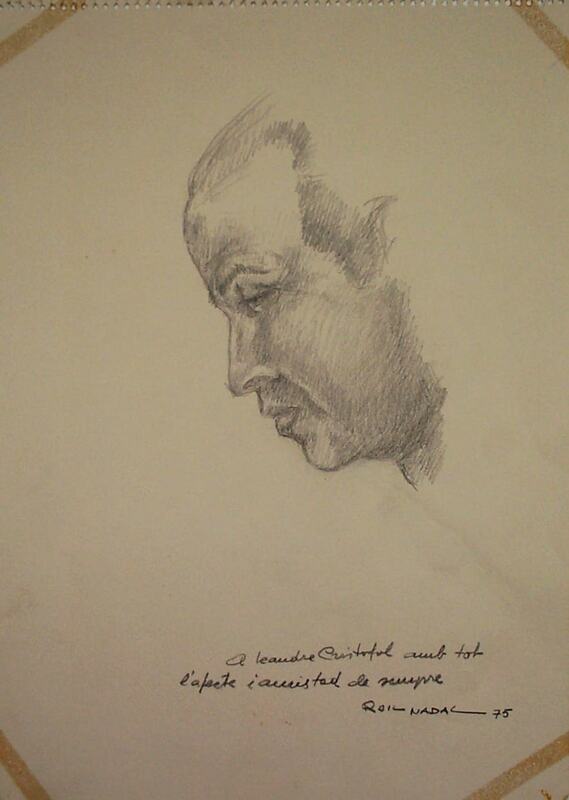 A leandre Cristofol amb tot
l'afecte i amistad de sempre
ROIG NADAL 75